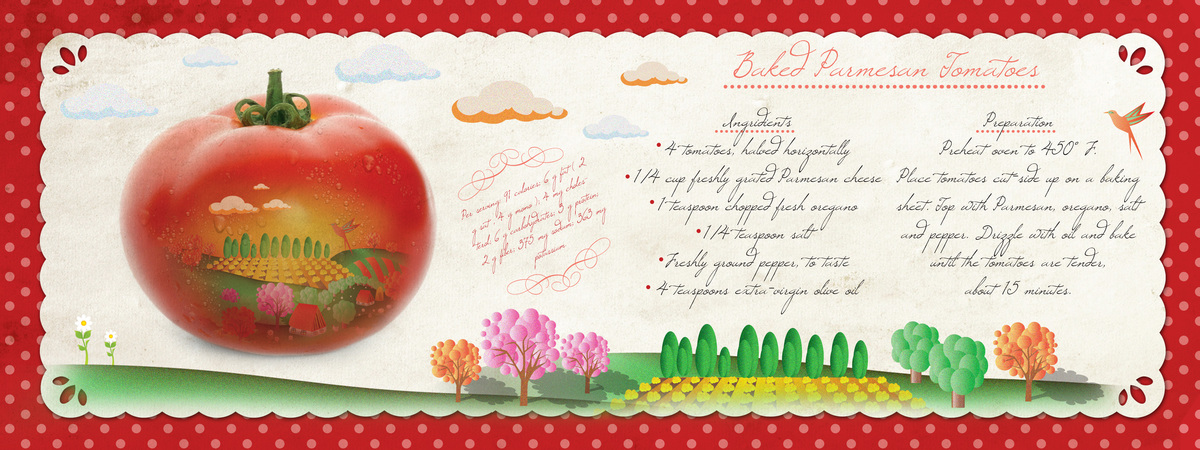 Baked Parmesan Tomatoes
Per serving: 91 calories; 6 g fat ( 2
g sat , 4 g mono ); 4 mg choles
terol; 6 g carbohydrate; 3 g protein;
2 g fiber; 375 mg sodium; 363 mg
potassium.
Ingridients
• 4 tomatoes, halved horizontally
• 1/4 cup freshly grated Parmesan cheese
• 1 teaspoon chopped fresh oregano
• 1/4 teaspoon salt
• Freshly ground pepper, to taste
• 4 teaspoons extra-virgin olive oil
Preparation
Preheat oven to 450° F.
Place tomatoes cut-side up on a baking
sheet. Top with Parmesan, oregano, salt
and pepper. Drizzle with oil and bake
until the tomatoes are tender,
about 15 minutes.